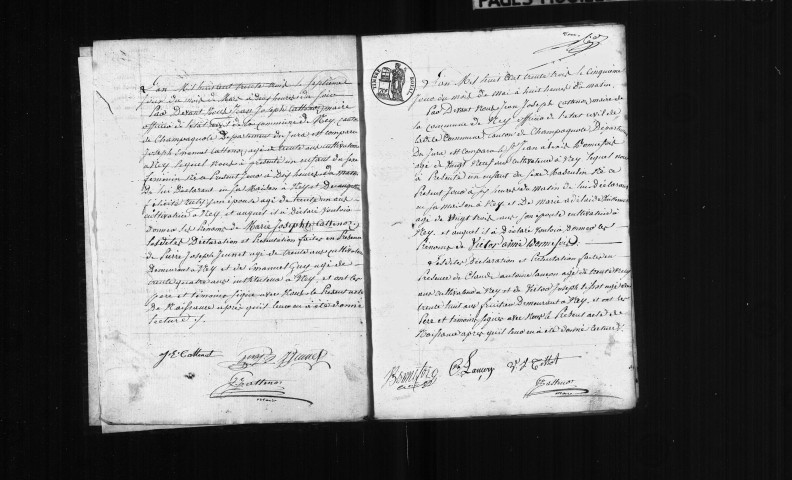 L'an Mil huit cent trente trois le septième
jour du mois de Mars à dix heures du
Par Devant Nous Jean Joseph Cattenoz maire
officier de l'état civil de la commune de Ney, canton
de Champagnole Département du Jura est comparu
Joseph Emanuel Cattenoz agé de trente ans cultivateur
à Ney lequel nous a présenté un enfant du sexe
féminin né ce Présent jour à Dix heures du matin
de lui Déclarant en sa Maison à Ney et De
félicité son épouse agé de trente un ans
cultivatrice à Ney et auquel il a déclaré vouloir
donner les Prénoms de Marie Josephte Cattenoz
Lesdites Déclaration et Présentation faites en Présence
de Pierre Joseph Jeunet agé de trente ans cultivateur
Demeurant à Ney et de Emanuel Guy agé de
trente quatre ans instituteur à Ney, et ont les
père et témoins signé avec Nous le Présent acte
de Naissance après qu'il leur en a été donné
lecture
J. E. Cattenoz Jeunet
Cattenoz
maire
TIMBRE ROYAL
L'an Mil huit cent trente trois le cinquième
jour du mois de mai à huit heures du matin,
Par Devant Nous Jean Joseph Cattenoz, maire de
la commune de Ney officier de l'état civil de
ladite Commune canton de Champagnole Département
du Jura est comparu le Sr Jean
agé de Vingt Neuf ans cultivateur à Ney lequel nous
a Présenté un enfant du sexe Masculin Né ce
Présent Jour à six heures du matin de lui Déclarant
en sa maison à Ney et De Marie adelaide
agé de Vingt trois ans son épouse cultivatrice à
Ney et auquel il a Déclaré vouloir donner les
Prénoms de Victor aimé
Lesdites Déclaration et Présentation faites en
Présence de Claude antoine Lançon agé de trente
ans cultivateur à Ney et de Victor Joseph agé de
trente huit ans Demeurant à Ney, et ont les
Père et témoins signé avec Nous le Présent acte de
Naissance après qu'il leur en a été donné lecture
Cattenoz
maire